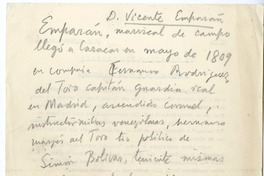 D. Vicente Emparán
Emparán, mariscal de campo
llegó a Caracas en mayo de 1809
en compañia Fernando Rodriguez
del Toro capitán Guardia real
en Madrid, ascendido coronel,
venezolanas, hermano
marqés del Toro tio politico de
Simón Bolivar, teniente mismas